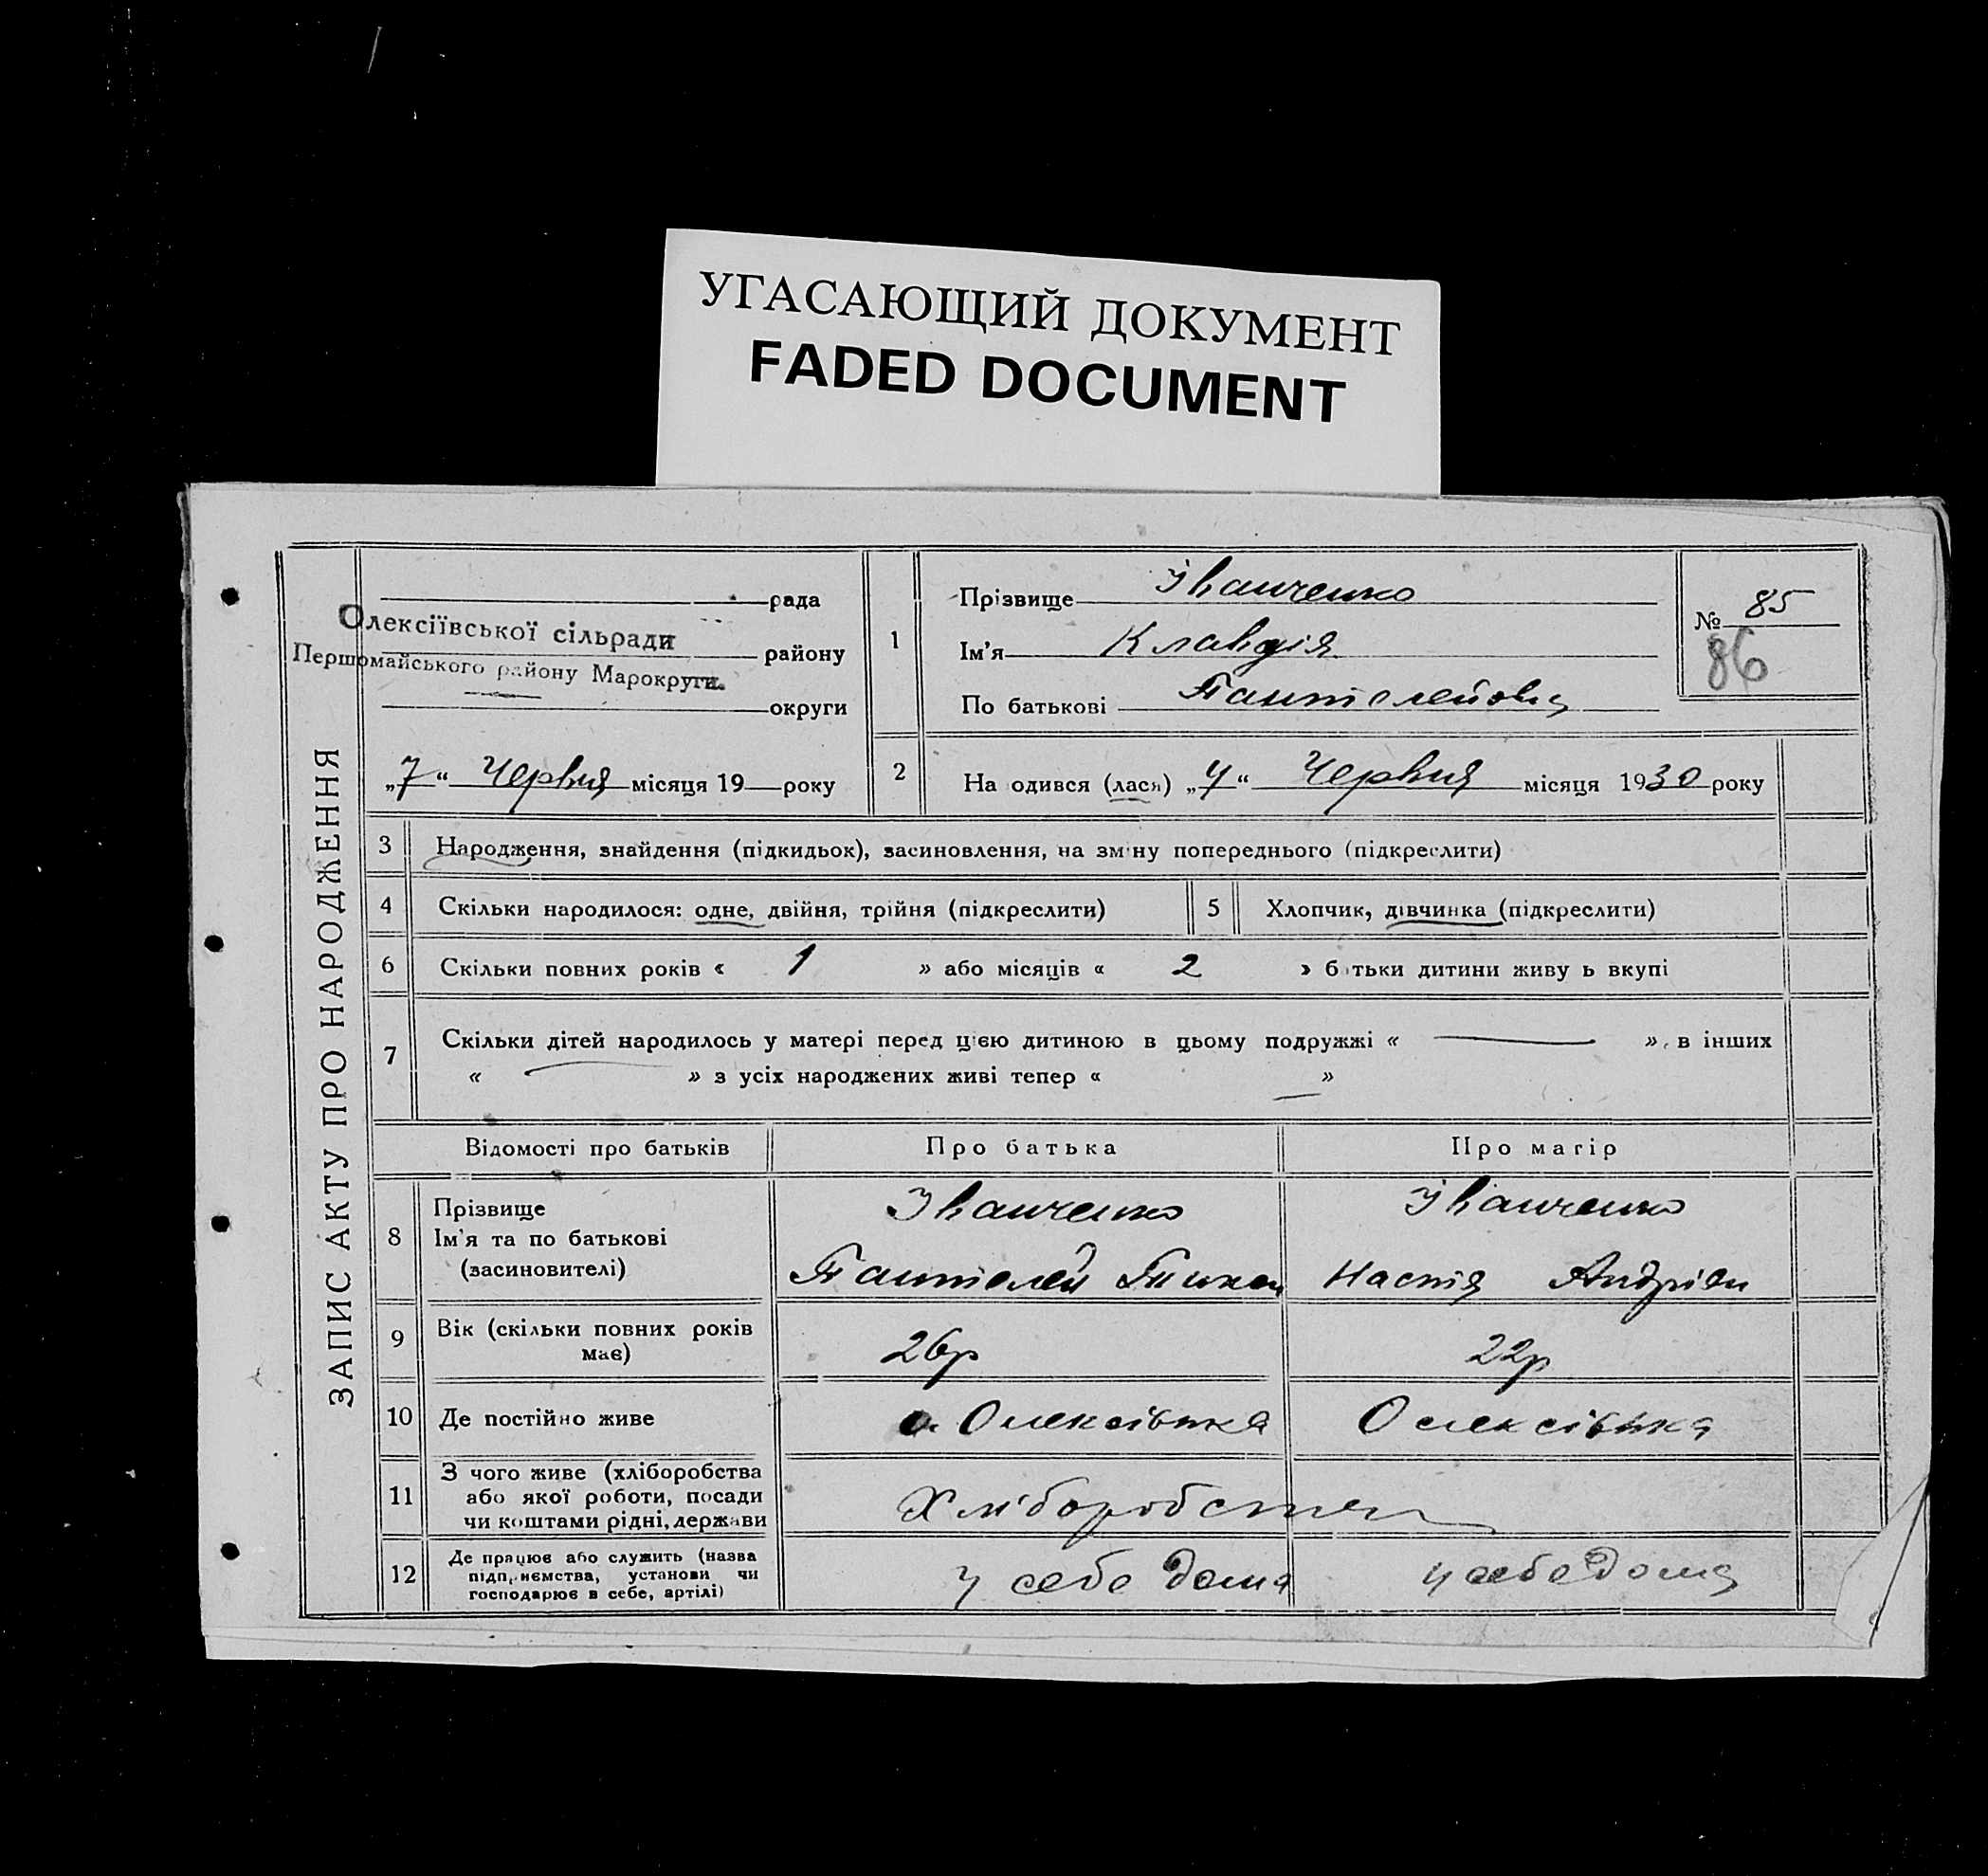 УГАСАЮЩИЙ ДОКУМЕНТ
FADED DOCUMENT
ЗАПИС АКТУ ПРО НАРОДЖЕННЯ
рада
Олексіївської сільради
району
Першомайського району Марокруги.
округи
„7“ Червня місяця 19 року
1
Прізвище Іванченко
Ім'я Клавдія
По батькові Пантелейовна
№ 85
86
2
На одився (лася) „4“ Червня місяця 1930 року
3 Народження, знайдення (підкидьок), засиновлення, на зміну попереднього (підкреслити)
4 Скільки народилося: одне, двійня, трійня (підкреслити)
5 Хлопчик, дівчинка (підкреслити)
6 Скільки повних років « 1 » або місяців « 2 » батьки дитини живу ь вкупі
7 Скільки дітей народилось у матері перед цією дитиною в цьому подружжі « — », в інших
« — » з усіх народжених живі тепер « — »
Відомості про батьків Про батька Про матір
8 Прізвище Іванченко Іванченко
Ім'я та по батькові
(засиновителі) Пантелей Настя Андріев
9 Вік (скільки повних років має) 26р 22р
10 Де постійно живе Олексіівка Олексіівка
11 З чого живе (хліборобства
або якої роботи, посади
чи коштами рідні, держави Хліборобства
12 Де працює або служить (назва
підприємства, установи чи
господарює в себе, артілі) у себе дома у себе дома